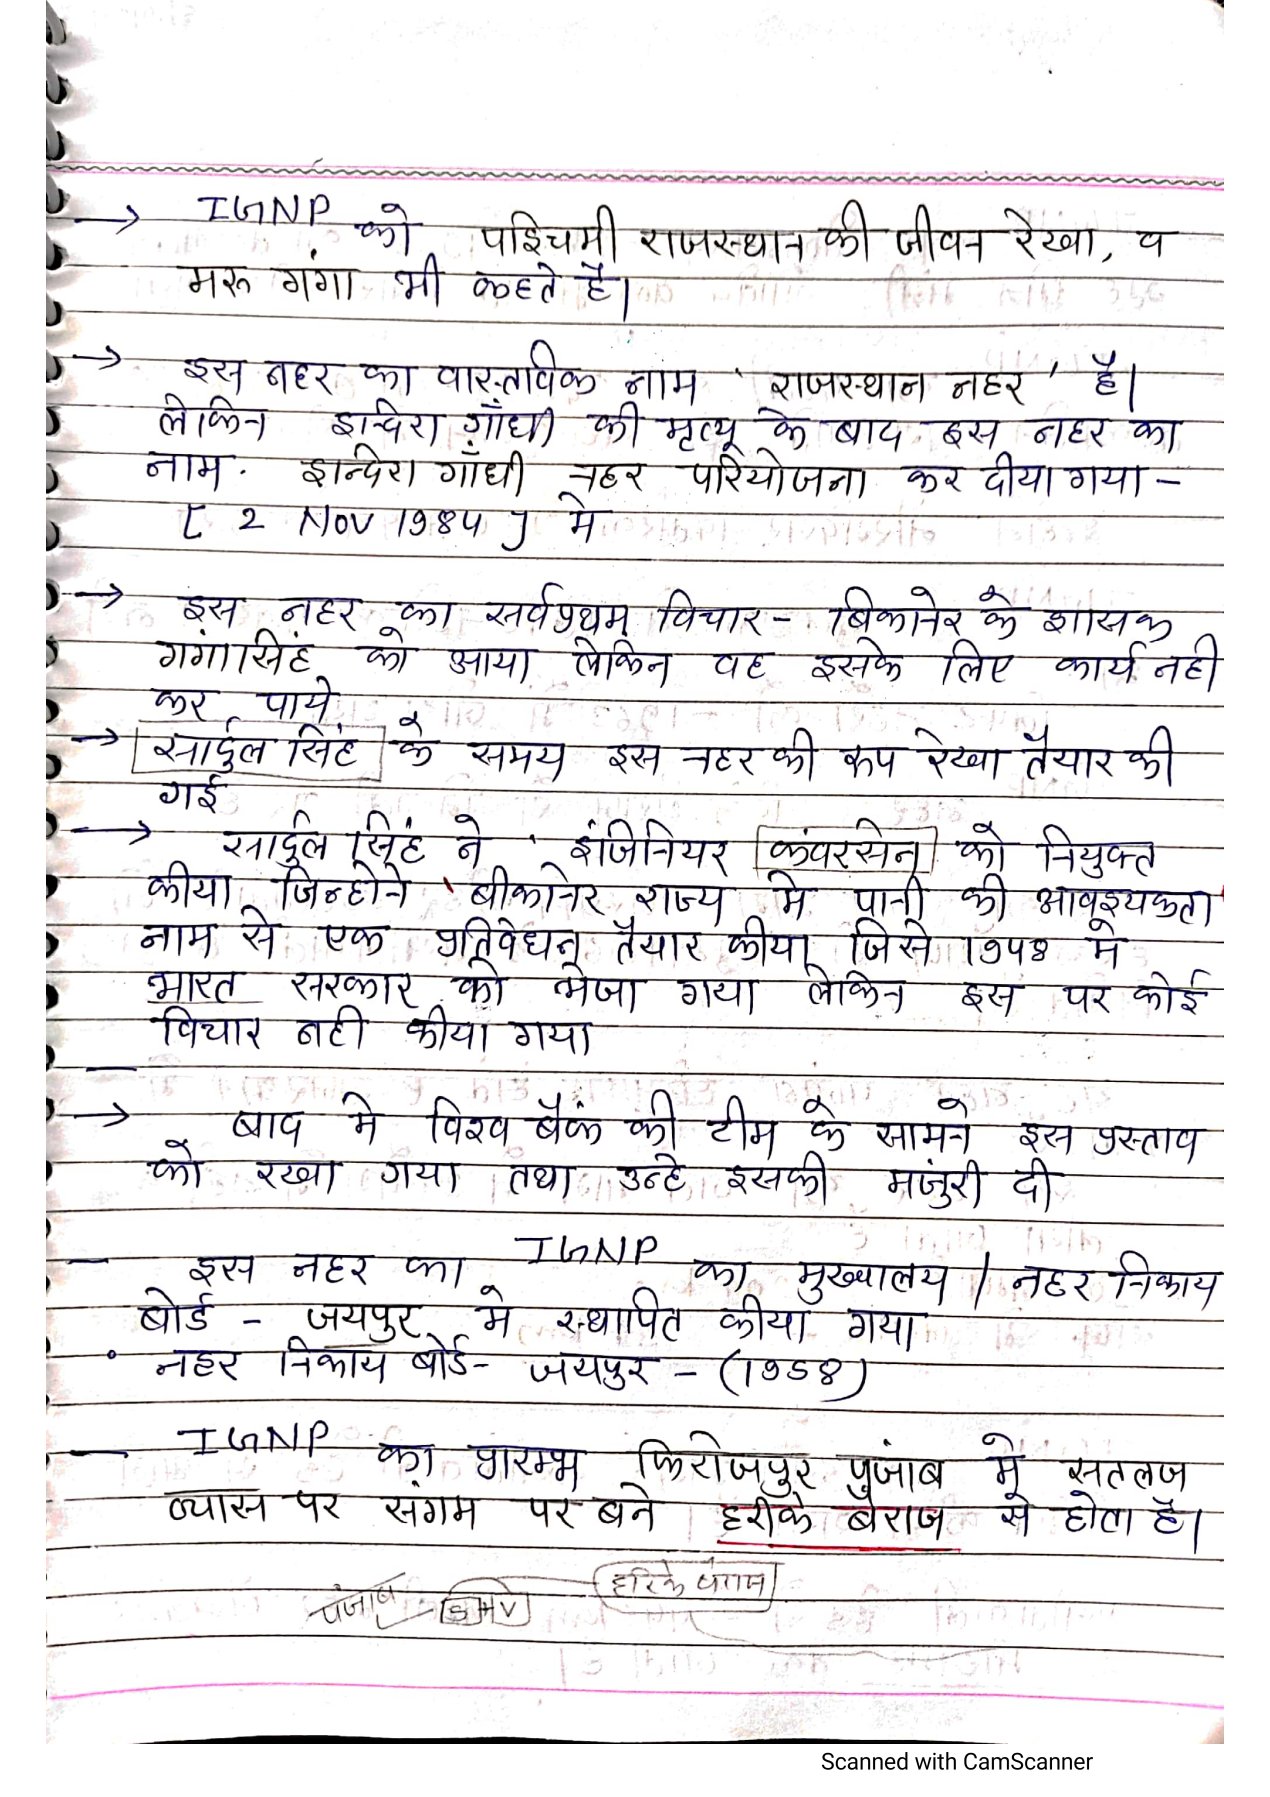 → IGNP को पश्चिमी राजस्थान की जीवन रेखा, व
मरू गंगा भी कहते है।
→ इस नहर का वास्तविक नाम ' राजस्थान नहर ' है।
लेकिन इन्दिरा गाँधी की मृत्यू के बाद इस नहर का
नाम. इन्दिरा गाँधी नहर परियोजना कर दीया गया -
[ 2 NOV 1984 ] मे
→ इस नहर का सर्वप्रथम विचार - बिकानेर के शासक
गंगासिंह को आया लेकिन वह इसके लिए कार्य नही
कर पाये
→ सार्दुल सिंह के समय इस नहर की रूप रेखा तैयार की
गई
→ सार्दुल सिंह ने ' इंजिनियर कंवरसेन को नियुक्त
कीया जिन्होने ' बीकानेर राज्य मे पानी की आवश्यकता'
नाम से एक प्रतिवेधन तैयार कीया जिसे 1948 मे
भारत सरकार को भेजा गया लेकिन इस पर कोई
विचार नही कीया गया
→ बाद मे विश्व बैंक की टीम के सामने इस प्रस्ताव
को रखा गया तथा उन्हे इसकी मंजुरी दी
- इस नहर का IGNP का मुख्यालय / नहर निकाय
बोर्ड - जयपुर मे स्थापित कीया गया
• नहर निकाय बोर्ड - जयपुर - (1958)
- IGNP का प्रारम्भ फिरोजपुर पुंजाब मे सतलज
व्यास पर संगम पर बने हरीके बेराज से होता है।
हरिके
पंजाब
Scanned with CamScanner